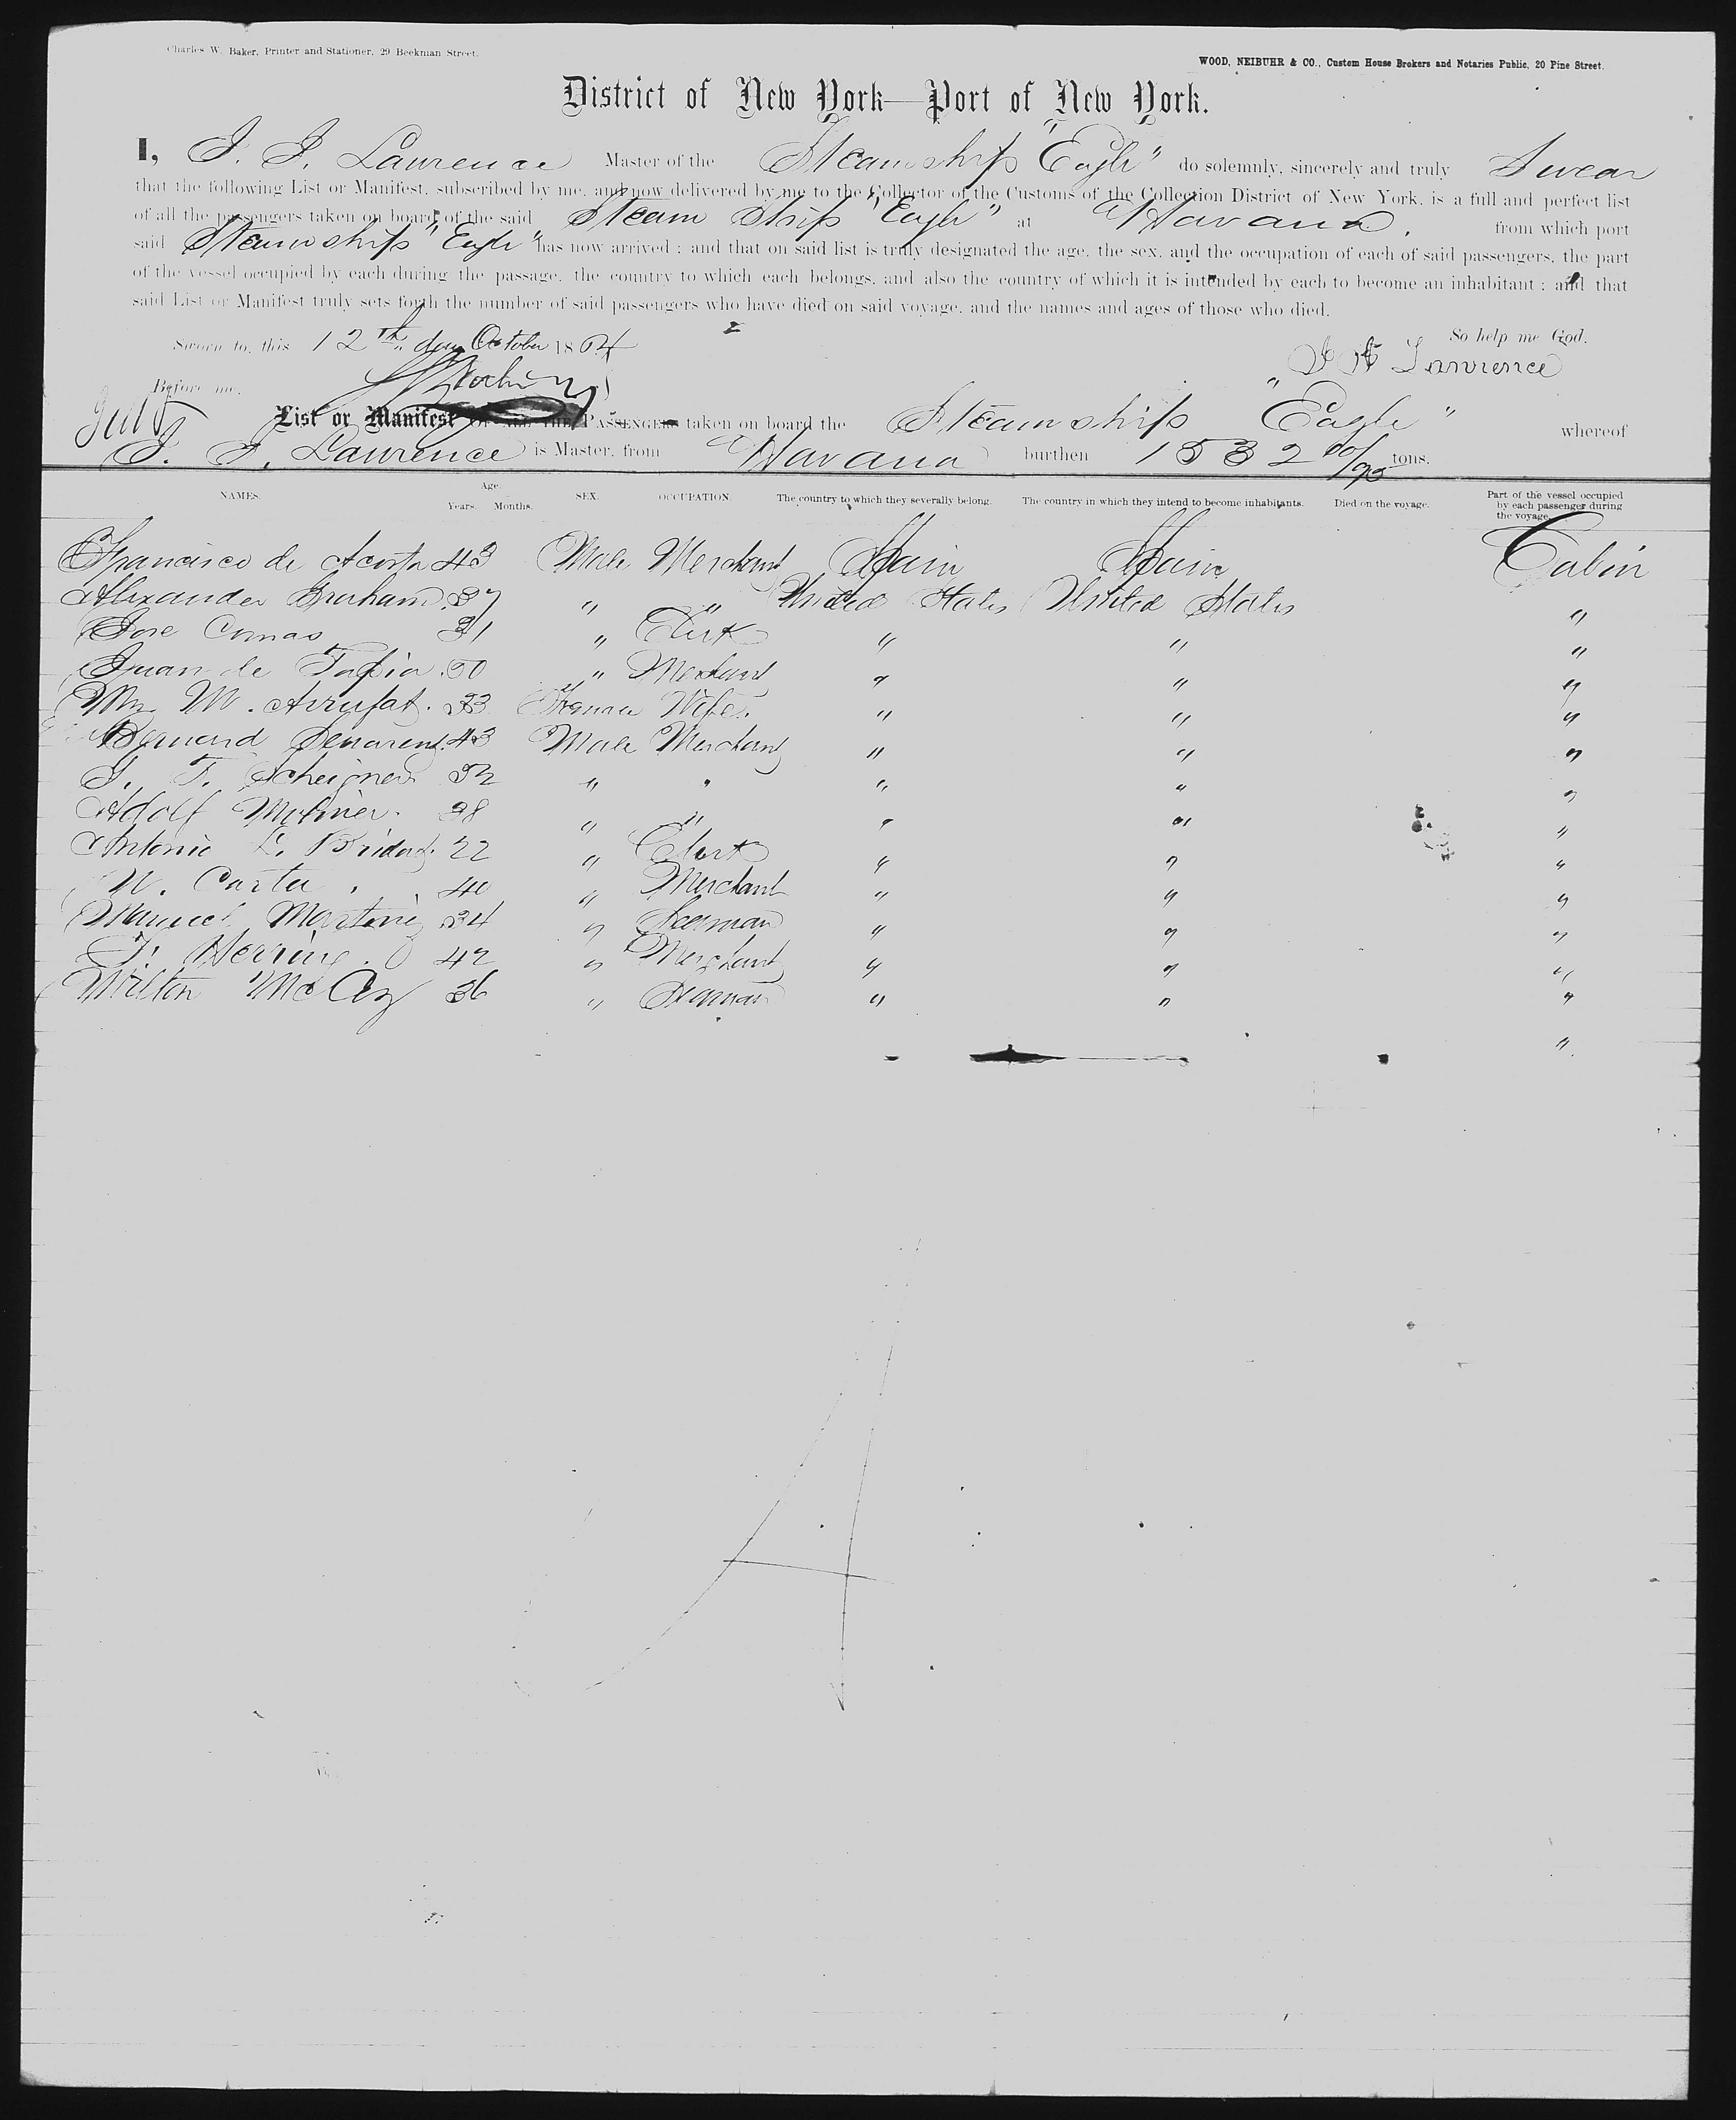 Charles W. Baker, Printer and Stationer, 29 Beekman Street.
WOOD, NEIBUHR & CO., Custom House Brokers and Notaries Public, 20 Pine Street.
District of New York—Port of New York.
I, Lawrence Master of the Steamship "Eagle" do solemnly, sincerely and truly Swear
that the following List or Manifest, subscribed by me, and now delivered by me to the Collector of the Customs of the Collection District of New York, is a full and perfect list
of all the passengers taken on board of the said Steam Ship "Eagle" at Havana. from which port
said Steamship "Eagle" has now arrived: and that on said list is truly designated the age, the sex, and the occupation of each of said passengers, the part
of the vessel occupied by each during the passage, the country to which each belongs, and also the country of which it is intended by each to become an inhabitant: and that
said List or Manifest truly sets forth the number of said passengers who have died on said voyage, and the names and ages of those who died.
So help me God.
Sworn to, this 12th day October 1864
Lawrence
Before me,
List or Manifest OF ALL THE PASSENGERS taken on board the Steamship Eagle" whereof
Lawrence is Master, from Havana burthen 1532 tons.
NAMES. Age. Years. Months. SEX. OCCUPATION. The country to which they severally belong. The country in which they intend to become inhabitants. Died on the voyage. Part of the vessel occupied by each passenger during the voyage.
Francisco de Acosta 43 Male Merchant Spain Spain Cabin
Alexander Graham 37 " " United States United States "
Jose Comas 31 " Clerk " " "
Juan de Tapia 50 " Merchant " " "
M. Arrufat. 33 Female Wife. " " "
Bernard 43 Male Merchant " " "
T. 32 " " " " "
Adolf 38 " " " " "
Antonio 22 " Clerk " " "
Carter 40 " Merchant " " "
Manuel 34 " Seaman " " "
Herring. 42 " Merchant " " "
Milton McCoy 36 " Seaman " " "
"